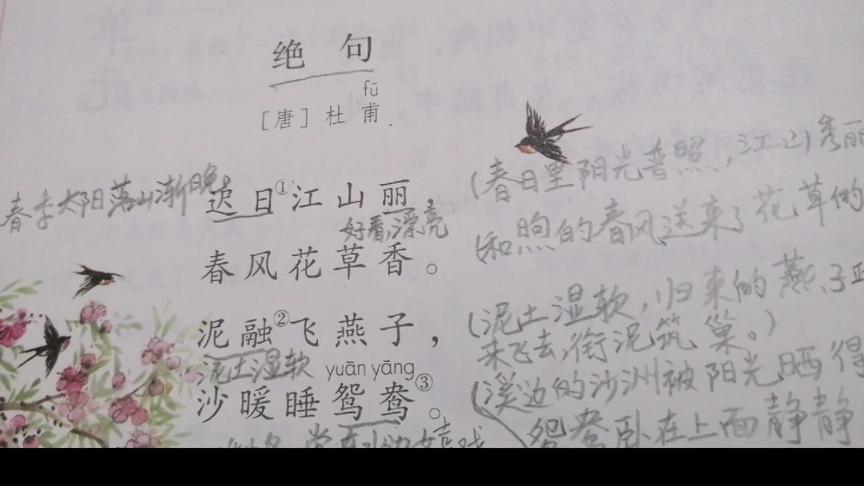 绝句
fǔ
[唐] 杜甫
(春日里阳光普照，江山秀丽
春季太阳落山渐晚
迟日①江山丽，
好看,漂亮
(和煦的春风送来了花草的
春风花草香。
(泥土湿软，归来的燕子
泥融②飞燕子，
来飞去衔泥筑巢。)
泥土湿软
yuān yāng
(溪边的沙洲被阳光晒得
沙暖睡鸳鸯③。
鸳鸯卧在上面静静